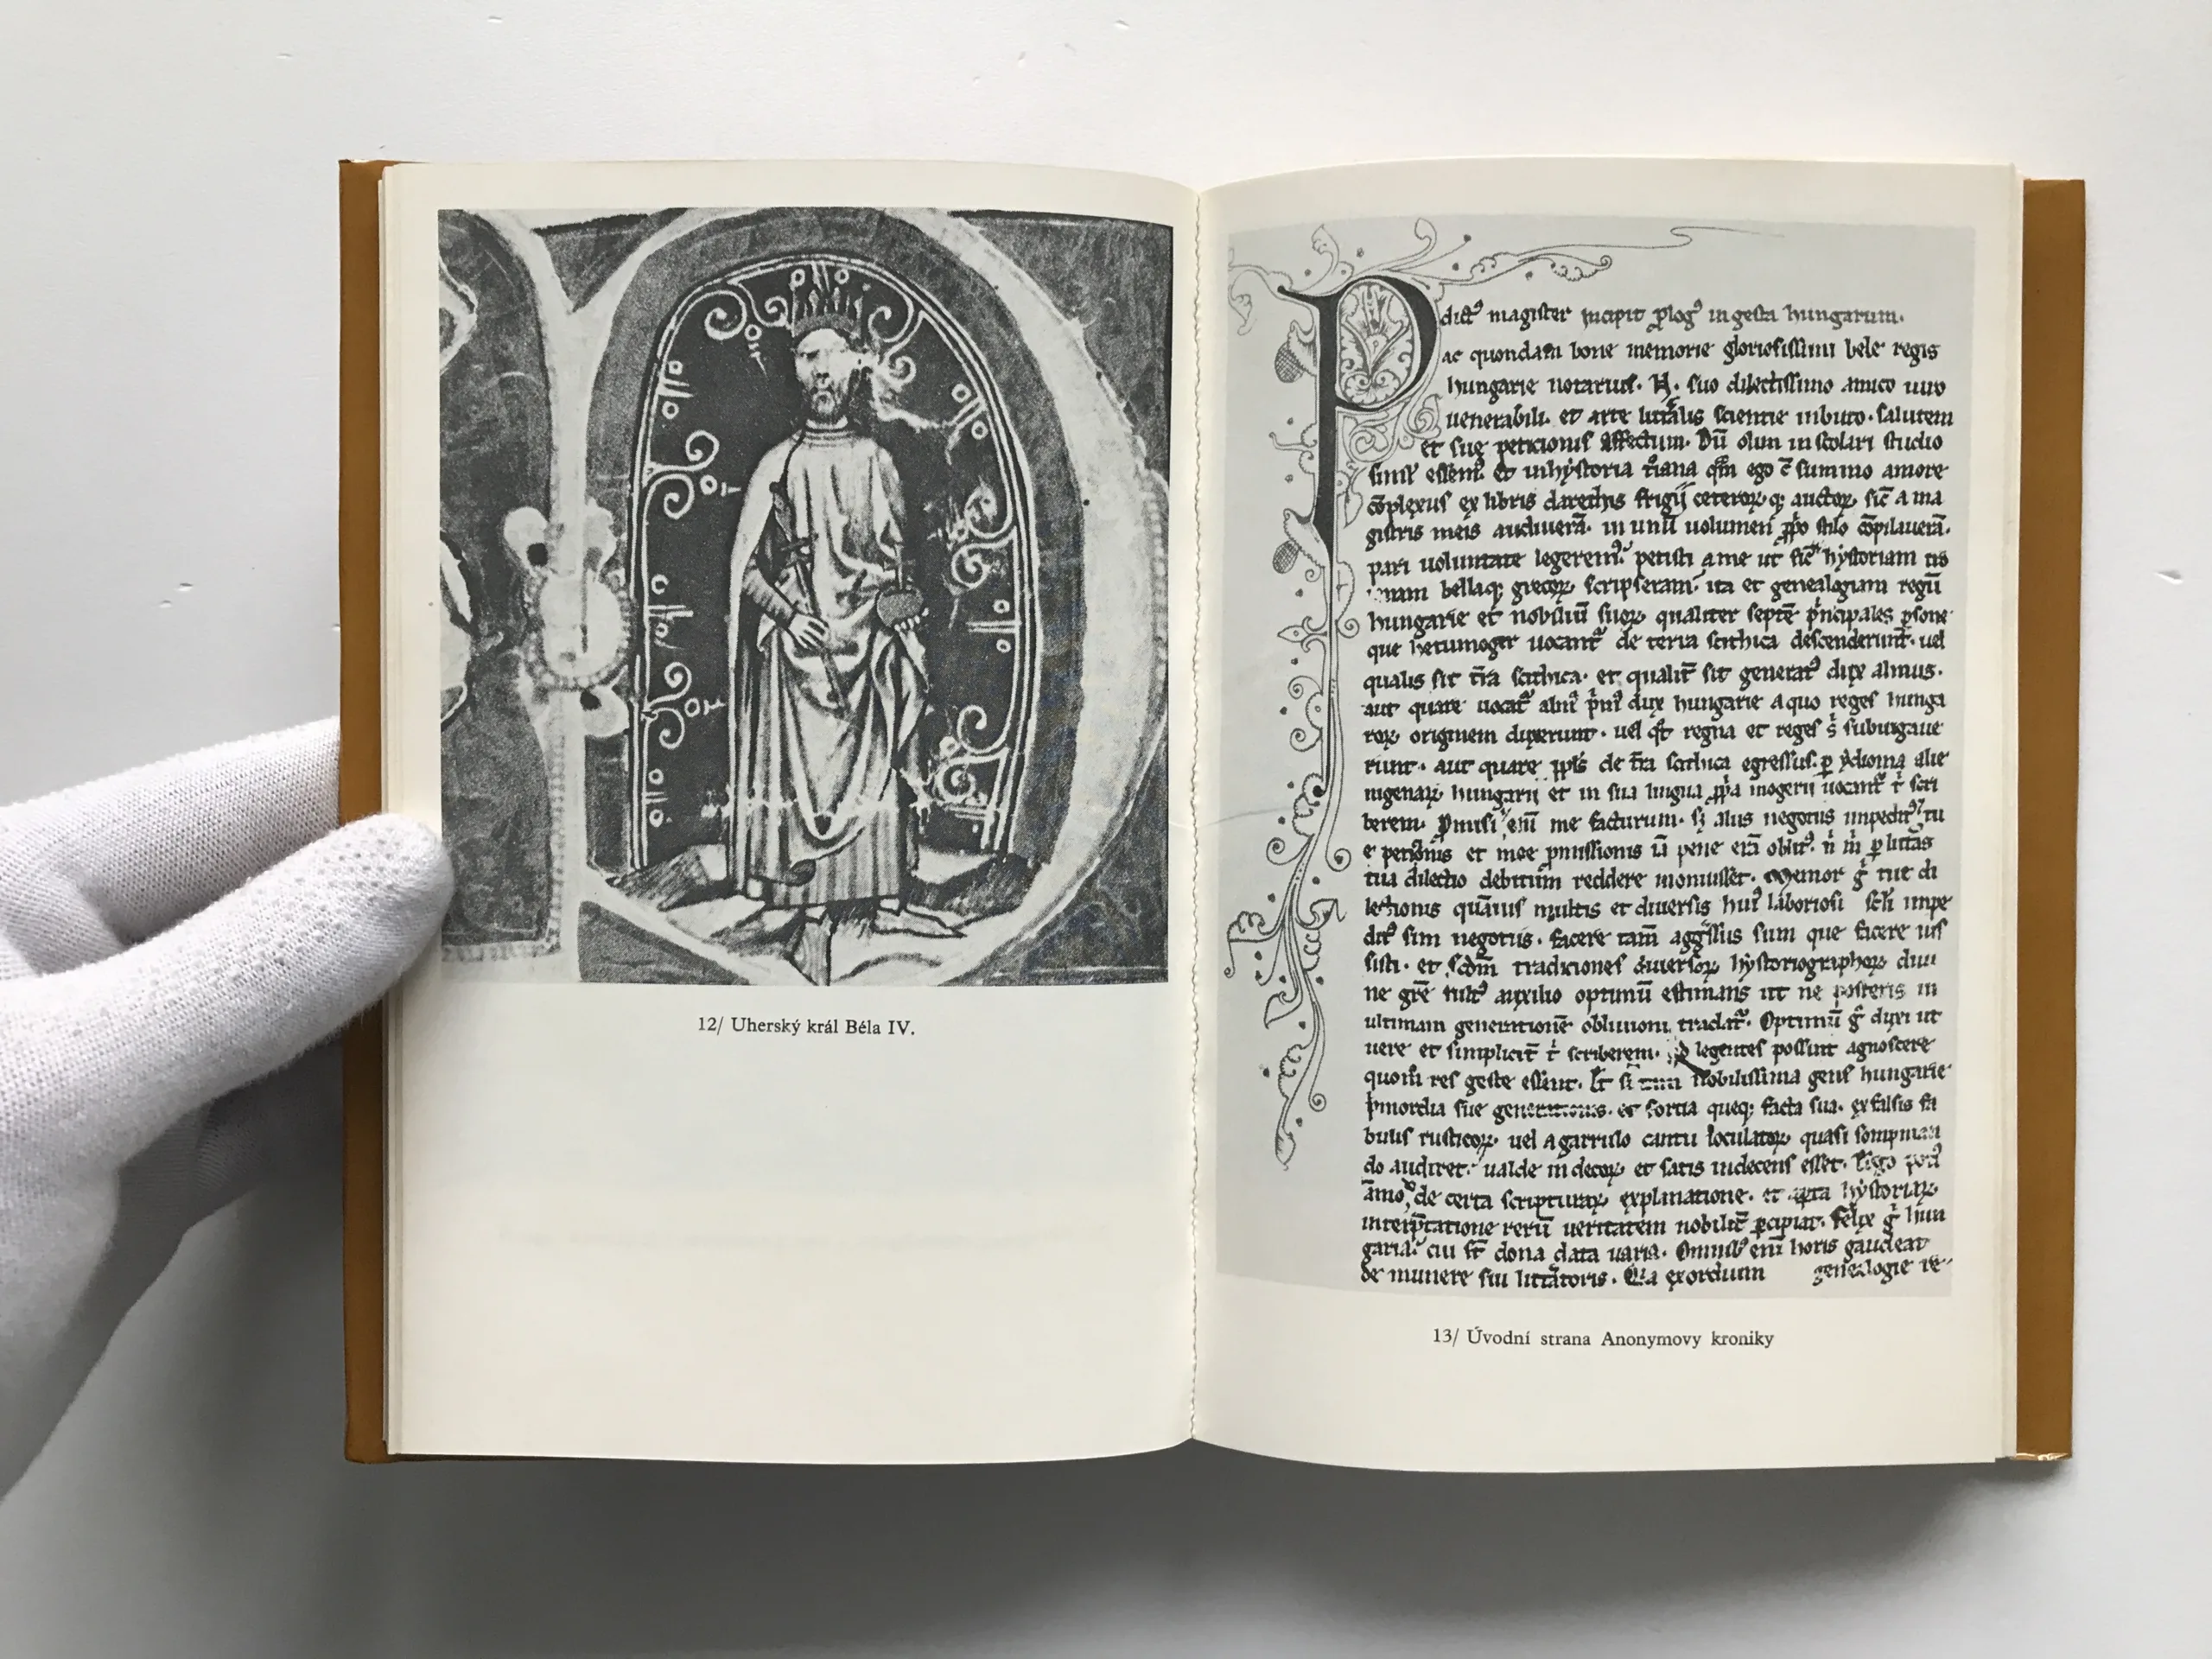 12/ Uherský král Béla IV.
P dictꝰ magister incipit ꝓlogꝰ in gesta hungarum.
ac quondam bone memorie gloriosissimi bele regis
hungarie notarius. N. suo dilectissimo amico uiro
uenerabili. et arte litt̄alis scientie inbuto. salutem
et sue peticionis affectum. Dū olim in scolari studio
simul essemꝰ et in hystoria t̓iana qm̄ ego c̄ summo amore
cōplexus ex libris daretis frigii ceteroꝝ qꝫ auctoꝝ sic̄ a ma
gistris meis audiuerā. in unū uolumen ꝓpo stilo cōpilauerā.
pari uoluntate legeremꝰ. petisti a me ut sic̄ hystoriam tro
ianam bellaqꝫ grecoꝝ scripseram. ita et genealogiam regū
hungarie et nobiliū suoꝝ. qualiter septē p̓ncipales ꝑsone
que hetumoger uocant᷑ de terra scithica descenderunt. uel
qualis sit t̄ra scithica. et qualit̄ sit generatꝰ dux almus.
aut quare uocat᷑ almꝰ p̓mꝰ dux hungarie a quo reges hunga
roꝝ originem duxerunt. uel qͦt regna et reges s̓ subiugaue
runt. aut quare ppl̄s de t̄ra scithica egressus. ꝑ ydioma alie
nigenaꝝ hungarii et in sua lingua ꝓp̓a mogerii uocant᷑ t̓ scri
berem. Promisi eni̅ me facturum. sꝫ aliis negotiis impeditꝰ. tu
e peticionis et mee promissionis iā pene erā oblitꝰ. n̓ m̓ ꝑ litt̄as
tua dilectio debitum reddere monuisset. Memor g̓ tue di
lectionis quāuis multis et diuersis huiꝰ laboriosi sc̄li impe
ditꝰ sim negotiis. facere tam̄ aggressus sum que facere ius
sisti. et scd̄m tradiciones diuersoꝝ hystoriographoꝝ diui
ne gr̄e fultꝰ auxilio optimū estimans ut ne posteris in
ultimam generationē obliuioni tradat᷑. Optimū g̓ duxi ut
uere et simplicit̄ t̓ scriberem. legentes possint agnoscere
quom̄ res geste essent. Et si tam nobilissima gens hungarie
p̓mordia sue generationis. et fortia queqꝫ facta sua. ex falsis fa
bulis rusticoꝝ. uel a garrulo cantu ioculatoꝝ quasi sompnian
do audiret. ualde indecoꝝ et satis indecens esset. Ergo pociꝰ
āmoͦ de certa scripturaꝝ explanatione. et apta hystoriaꝝ
interp̄tatione rerū ueritatem nobilit̄ ꝑcipiat. Felix g̓ hun
garia. cui st̄ dona data uaria. Omnibꝰ eni̅ horis gaudeat
de munere sui litt̄atoris. Quia exordium genealogie re
13/ Úvodní strana Anonymovy kroniky